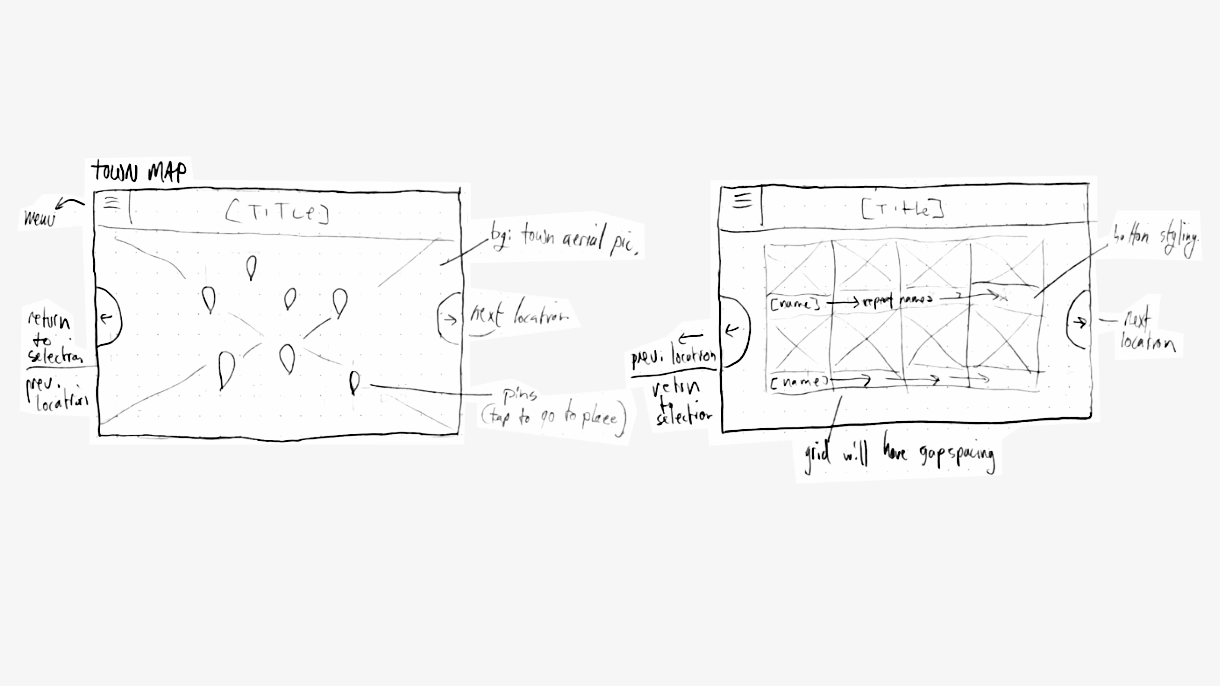 TOWN MAP
menu
[TITLE]
bg: town aerial pic.
return
to
selection
prev.
location
next location
pins
(tap to go to place)
[Title]
button styling.
[name] repeat names
[name]
prev. location
return
to
selection
next
location
grid will have gap spacing